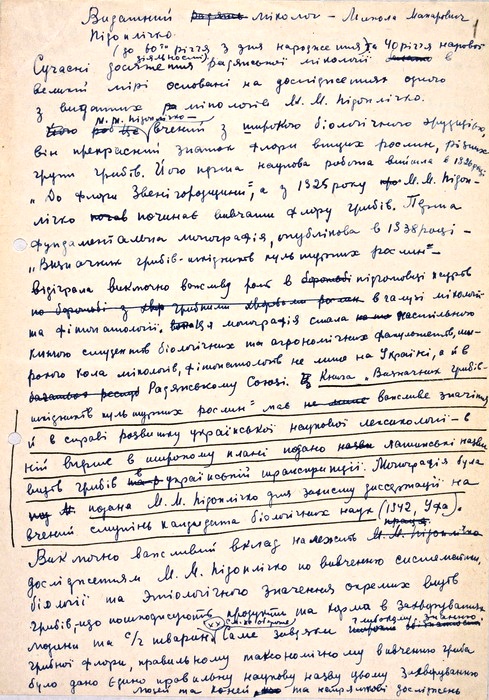 Видатний міколог – Микола Макарович 1
Підоплічко.
(до 60-річчя з дня народження та 40 річчя наукової
діяльності)
Сучасні досягнення радянської мікології в
великій мірі основані на дослідженнях одного
з видатних мікологів М. М. Підоплічко.
М. М. Підоплічко –
вчений з широкою біологічною ерудицією,
він прекрасний знаток флори вищих рослин, різних
груп грибів. Його перша наукова робота вийшла в
„До флори Звенигородщини", а з 1925 року М. М. Підоп-
лічко починає вивчати флору грибів. Перша
фундаментальна монографія, опублікова в 1938 році –
„Визначник грибів-шкідників культурних рослин" –
відіграла виключно важливу роль в підготовці кадрів
в галузі мікології
та фітопатології. Ця монографія стала настільною
книгою студентів біологічних та агрономічних факультетів, ши-
рокого кола мікологів, фітопатологів не лише на Україні, а й в
Радянському Союзі. Книга „Визначник грибів-
шкідників культурних рослин" має важливе значення
й в справі розвитку української наукової лексикології – в
ній вперше в широкому плані подано латинські назви
видів грибів в українській транскрипції. Монографія була
подана М. М. Підоплічко для захисту дисертації на
вчений ступінь кандидата біологічних наук (1942, Уфа).
Виключно важливий вклад належить
дослідженням М. М. Підоплічко по вивченню систематики,
біології та етіологічного значення окремих видів
грибів, що пошкоджують продукти та корма в захворюваннях
людини та с/г тварин. Саме завдяки глибокому знанню
грибної флори, правильному таксономічному вивченню гриба
було дано єдино правильну наукову назву цьому захворюванню
людей та коней на